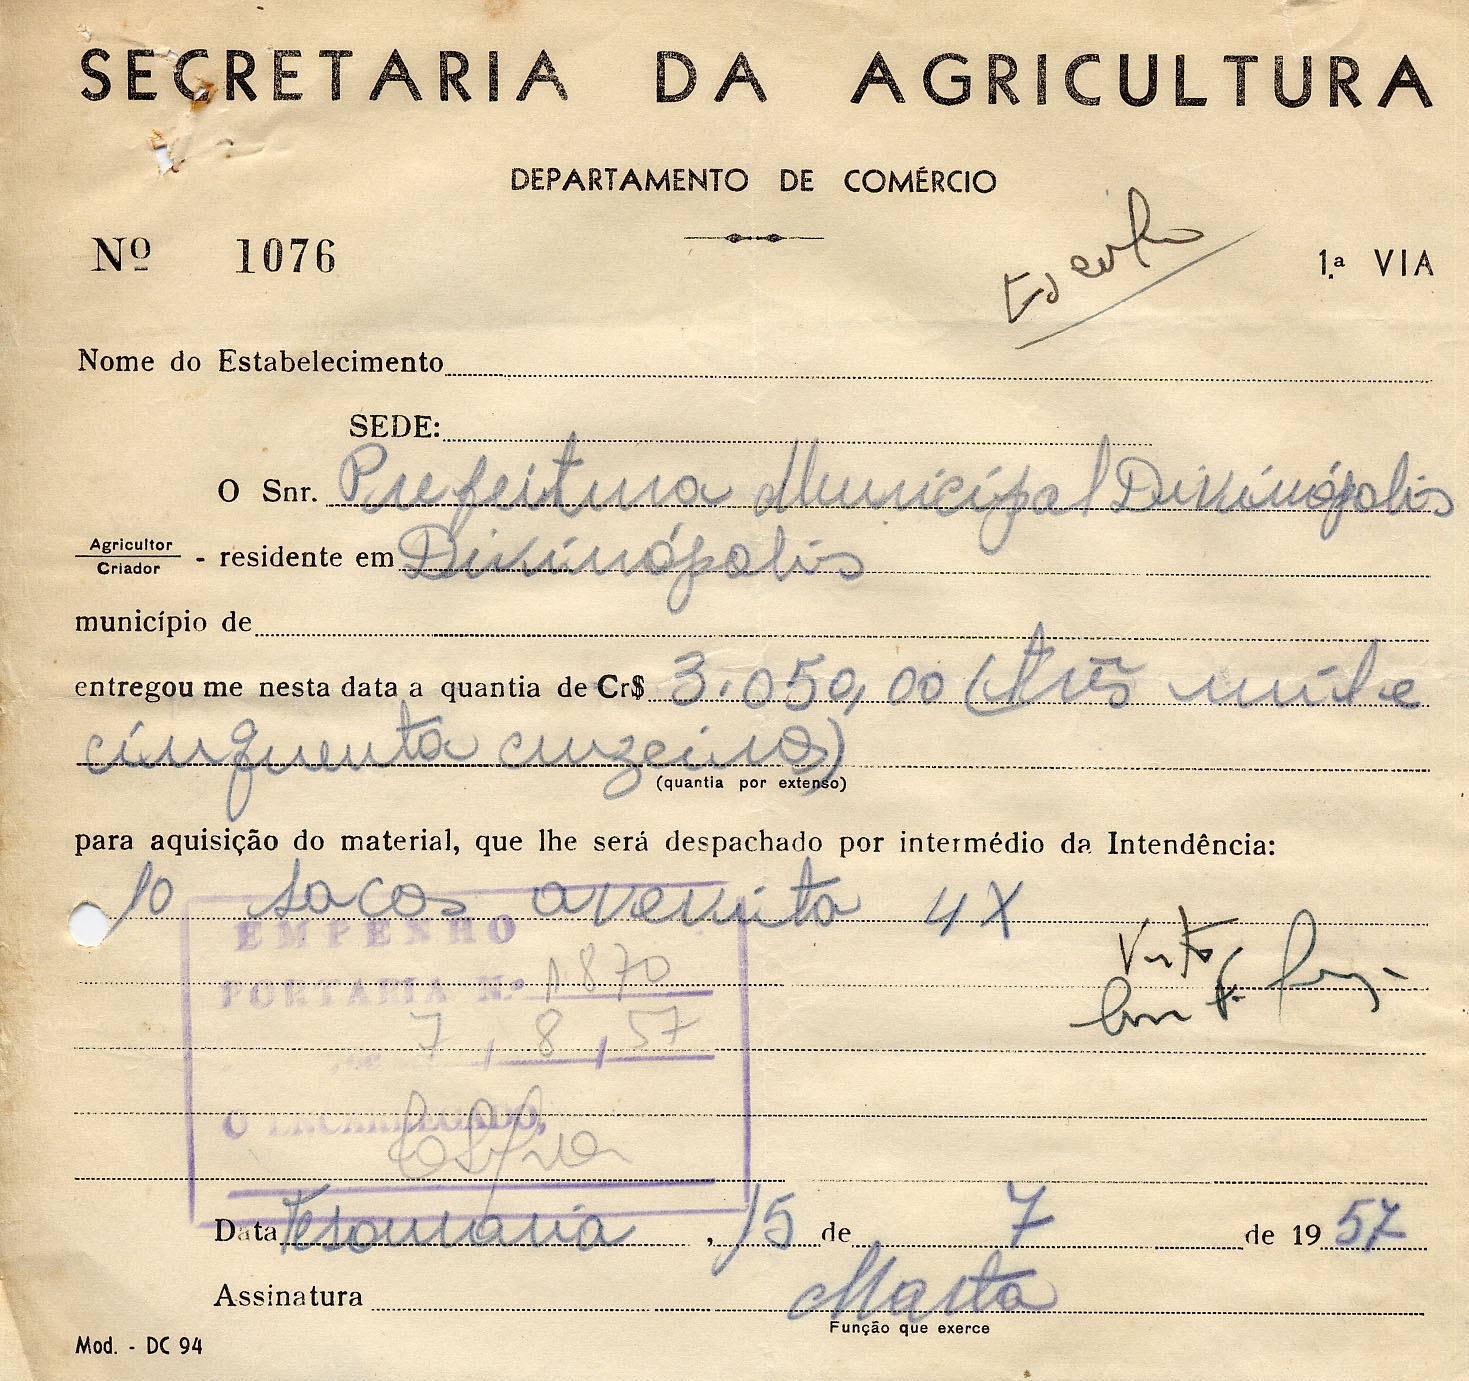 SECRETARIA DA AGRICULTURA
DEPARTAMENTO DE COMÉRCIO
Nº 1076
1.ª VIA
Nome do Estabelecimento
SEDE:
O Snr. Prefeitura Municipal Divinópolis
Agricultor
Criador - residente em Divinópolis
município de
entregou me nesta data a quantia de Cr$ 3.050,00 (três mil e
cinquenta cruzeiros)
(quantia por extenso)
para aquisição do material, que lhe será despachado por intermédio da Intendência:
10 sacos avenita 4X
EMPENHO
Visto
PORTARIA N.º 1870
7 / 8 / 57
O ENCARREGADO,
Data Tesouraria, 15 de 7 de 1957
Assinatura Marta
Função que exerce
Mod. - DC 94